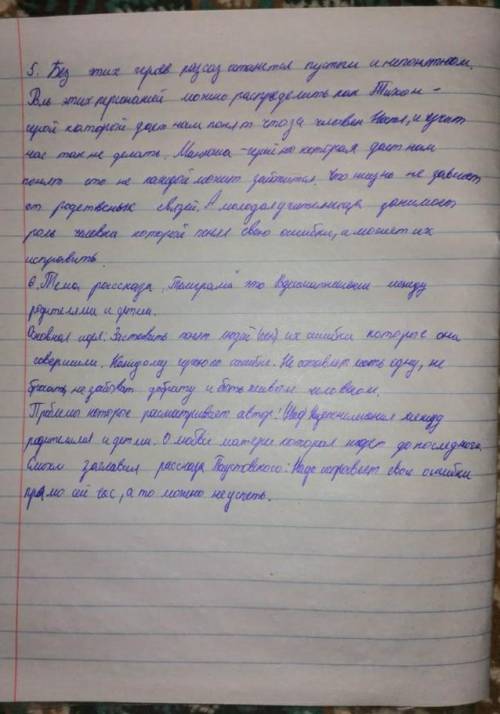 5. Без этих героев рассаз останется пустым и непонятном.
Роль этих персонажей можно распределить как Тихон -
герой которой даст нам понят что за человек Настя, и учит
нас так не делать. Манюша - героиня которая даст нам
понят что не каждой может зайтится. Что жизнь не зависит
от родственых связей. А молодая учительница занимает
роль человка которой понял свою ошибки, и может их
исправить.
6. Тема рассказа "Телеграма" это Взаимоотношении между
родителями и детми.
Основная идея: Заставить понят людей их ошибки которое они
совершили. Каждому нужно ошибке. Не оставлят мать одну, не
бросать, не забоват доброту и быть живым человеком.
Проблема которое расматривает автор: Взаимопонимания между
родителями и детми. О любве матере которая ждет до последнего.
Смысл заглавия рассказа Паустовского: Надо исправлет свои ошибки
прямо сей час, а то можно не успеть.